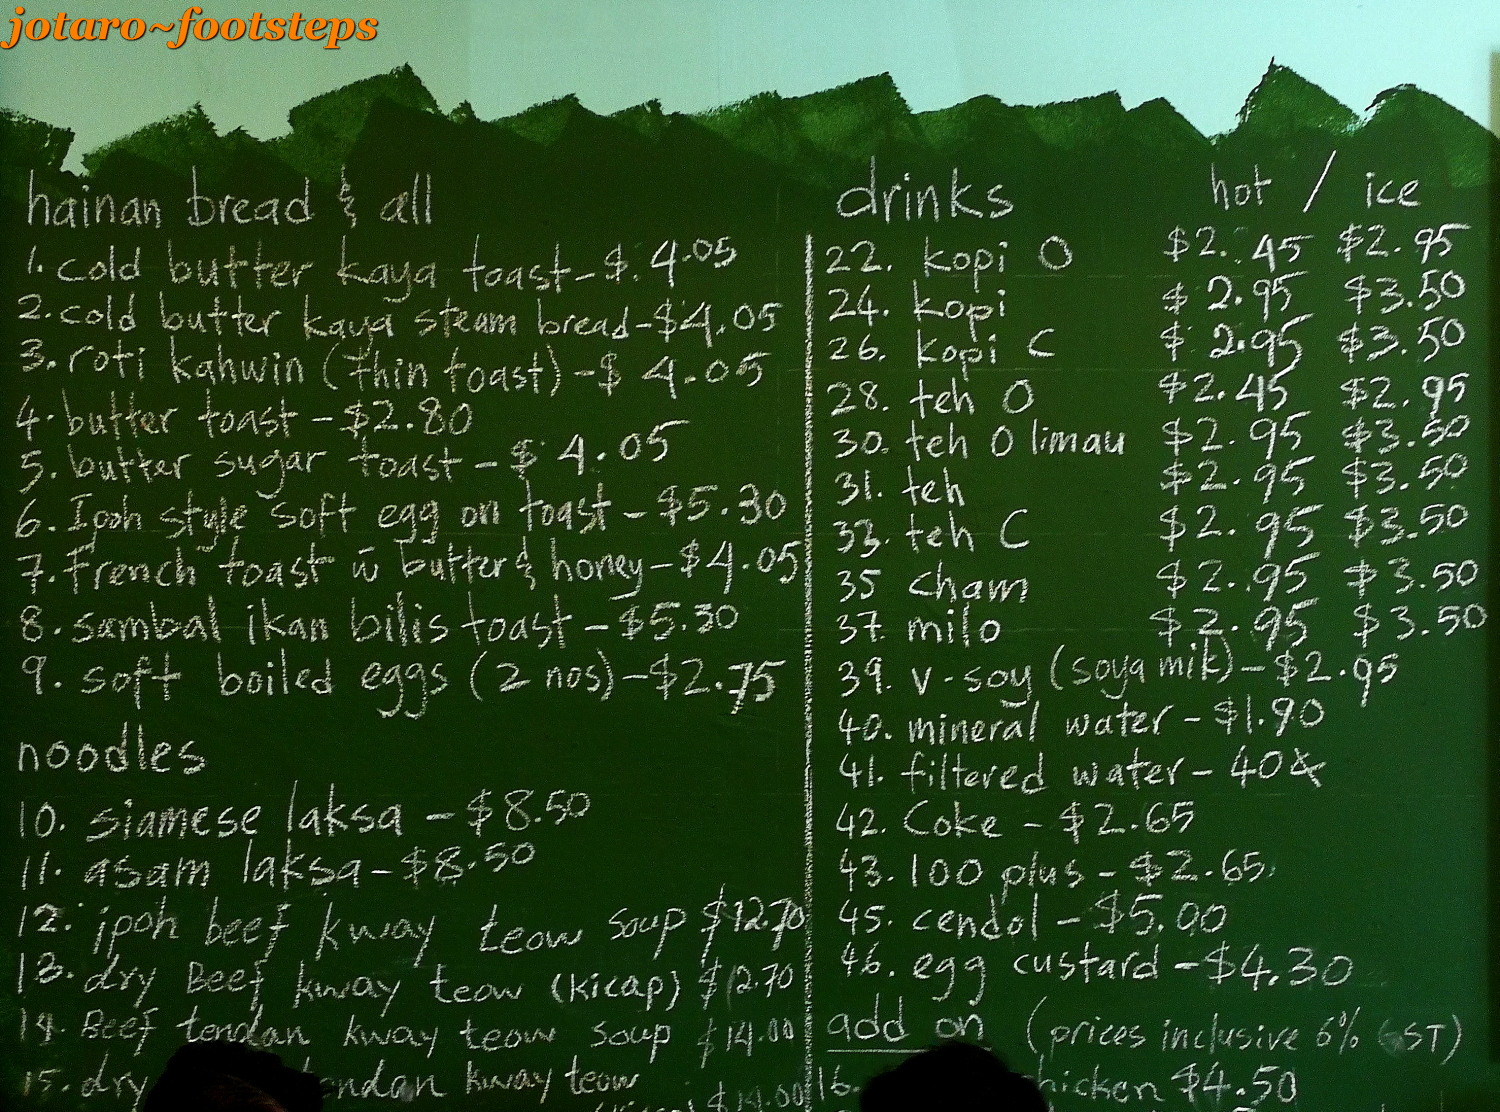 jotaro~footsteps
hainan bread & all
1. cold butter kaya toast - $4.05
2. cold butter kaya steam bread - $4.05
3. roti kahwin (thin toast) - $4.05
4. butter toast - $2.80
5. butter sugar toast - $4.05
6. Ipoh style soft egg on toast - $5.30
7. French toast w̄ butter & honey - $4.05
8. sambal ikan bilis toast - $5.30
9. soft boiled eggs (2 nos) - $2.75
noodles
10. siamese laksa - $8.50
11. asam laksa - $8.50
12. ipoh beef kway teow soup $12.70
13. dry Beef kway teow (kicap) $12.70
14. Beef tendan kway teow soup $14.00
15. dry endan kway teow
$14.00
drinks hot / ice
22. kopi O $2.45 $2.95
24. kopi $2.95 $3.50
26. kopi C $2.95 $3.50
28. teh O $2.45 $2.95
30. teh O limau $2.95 $3.50
31. teh $2.95 $3.50
33. teh C $2.95 $3.50
35 cham $2.95 $3.50
37. milo $2.95 $3.50
39. v-soy (soya mik) - $2.95
40. mineral water - $1.90
41. filtered water - 40¢
42. Coke - $2.65
43. 100 plus - $2.65
45. cendol - $5.00
46. egg custard - $4.30
add on (prices inclusive 6% GST)
16. chicken $4.50